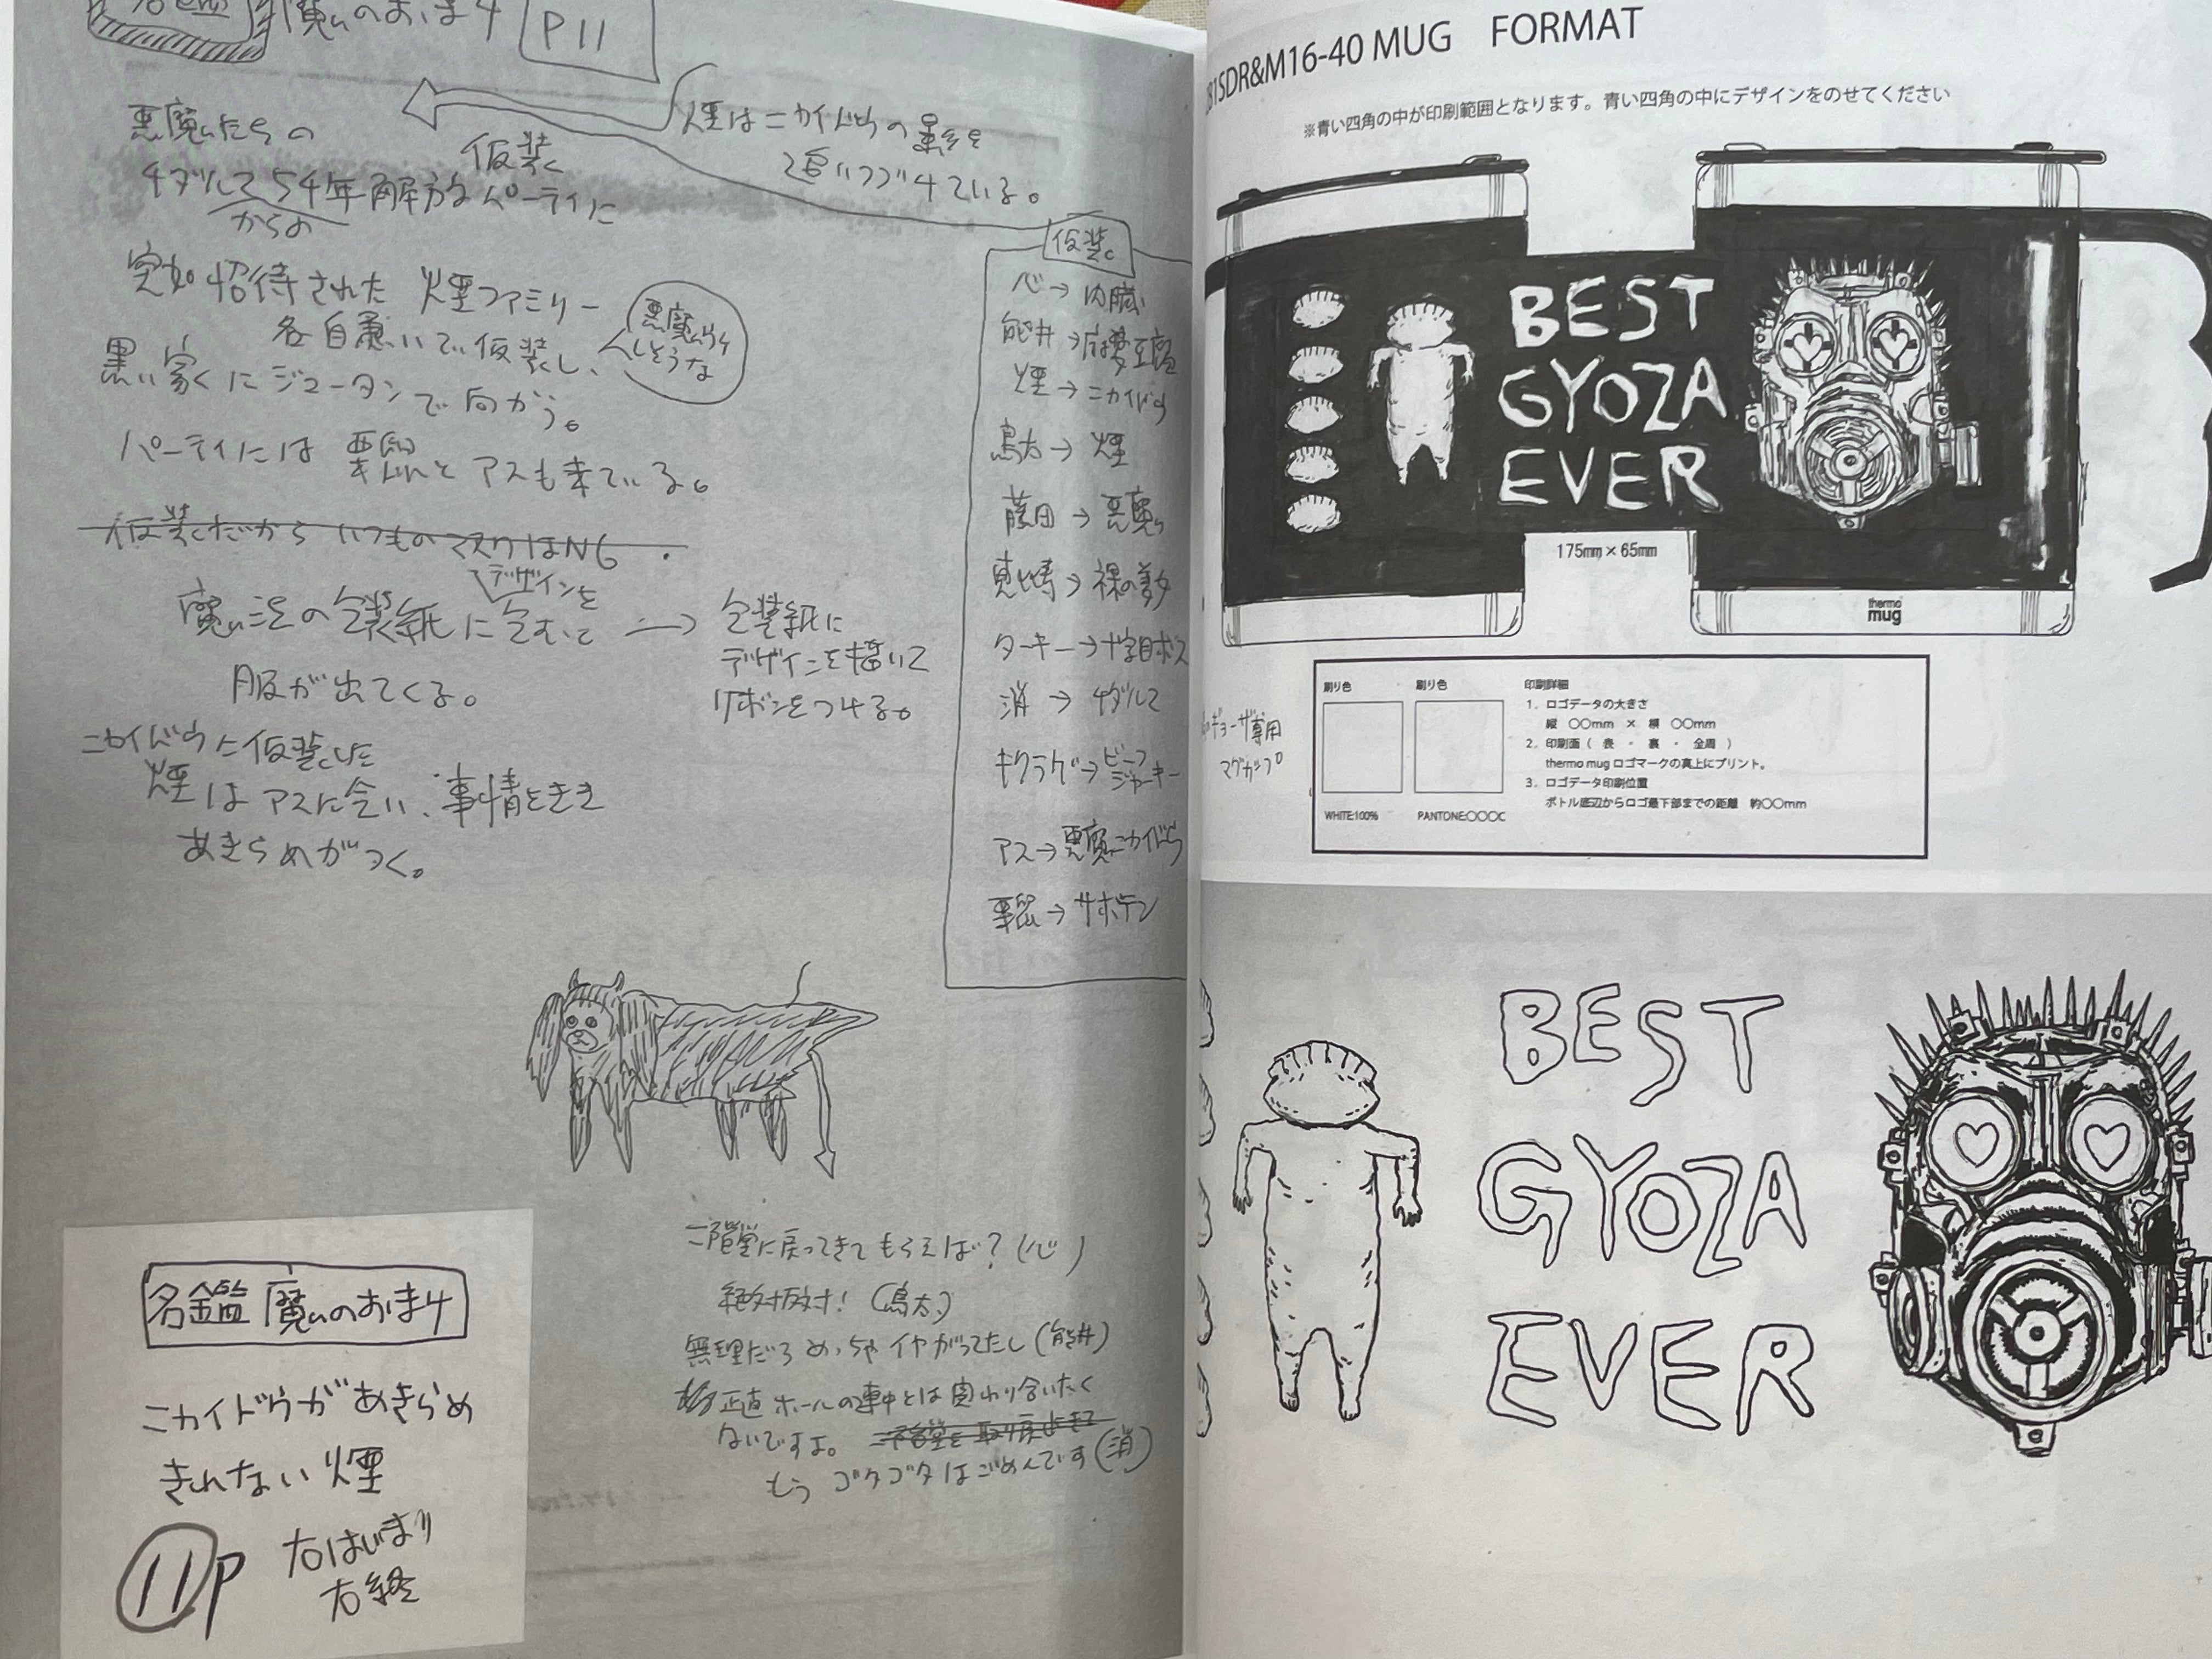 名鑑 魔のおまけ
P11
煙はニカイドウの影を
追いつづけている。
悪魔たちの
チダルマ54年解放 仮装 パーティに
からの
突如招待された 煙ファミリー
各自思い思いで仮装し、
悪魔ウケ
しそうな
黒い家にジュータンで向かう。
パーティには栗鼠とアスも来ている。
仮装だから いつものマスクはNG.
魔法の包装紙に デザインを
服が出てくる。
→ 包装紙に
デザインを描いて
リボンをつける。
ニカイドウに仮装した
煙はアスに会い、事情をきき
あきらめがつく。
仮装。
心→内臓
能井→麻婆豆腐
煙→ニカイドウ
鳥太→煙
藤田→悪魔
恵比寿→裸の美女
ターキー→十字目ボス
消→チダルマ
キクラゲ→ビーフ
ジャーキー
アス→悪魔ニカイドウ
栗鼠→サボテン
二階堂に戻ってきてもらえば?(心)
絶対反対!(鳥太)
無理だろ めっちゃイヤがってたし(能井)
正直ホールの連中とは関わり合いたく
ないですよ。
もうゴタゴタはごめんです(消)
名鑑 魔のおまけ
ニカイドウがあきらめ
きれない煙
11P 右はじまり
右終
SDR&M16-40 MUG FORMAT
※青い四角の中が印刷範囲となります。青い四角の中にデザインをのせてください
BEST
GYOZA
EVER
175mm×65mm
thermo
mug
ギョーザ専用
マグカップ
刷り色 刷り色
WHITE:100% PANTONE:○○○C
印刷詳細
1. ロゴデータの大きさ
縦 ○○mm × 横 ○○mm
2. 印刷面( 表 ・ 裏 ・ 全周 )
thermo mug ロゴマークの真上にプリント。
3. ロゴデータ印刷位置
ボトル底辺からロゴ最下部までの距離 約○○mm
BEST
GYOZA
EVER